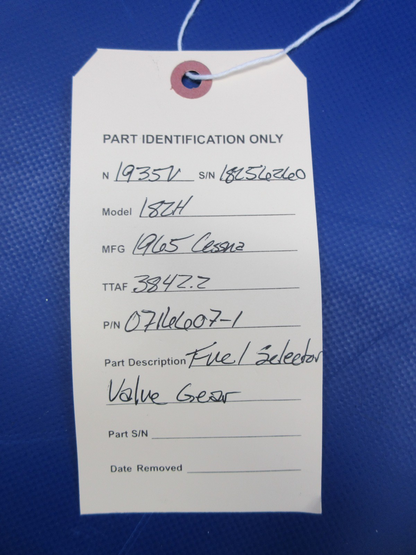 PART IDENTIFICATION ONLY
N 1935V S/N 18256260
Model 182H
MFG 1965 Cessna
TTAF 3842.2
P/N 0716607-1
Part Description Fuel Selector
Valve Gear
Part S/N
Date Removed